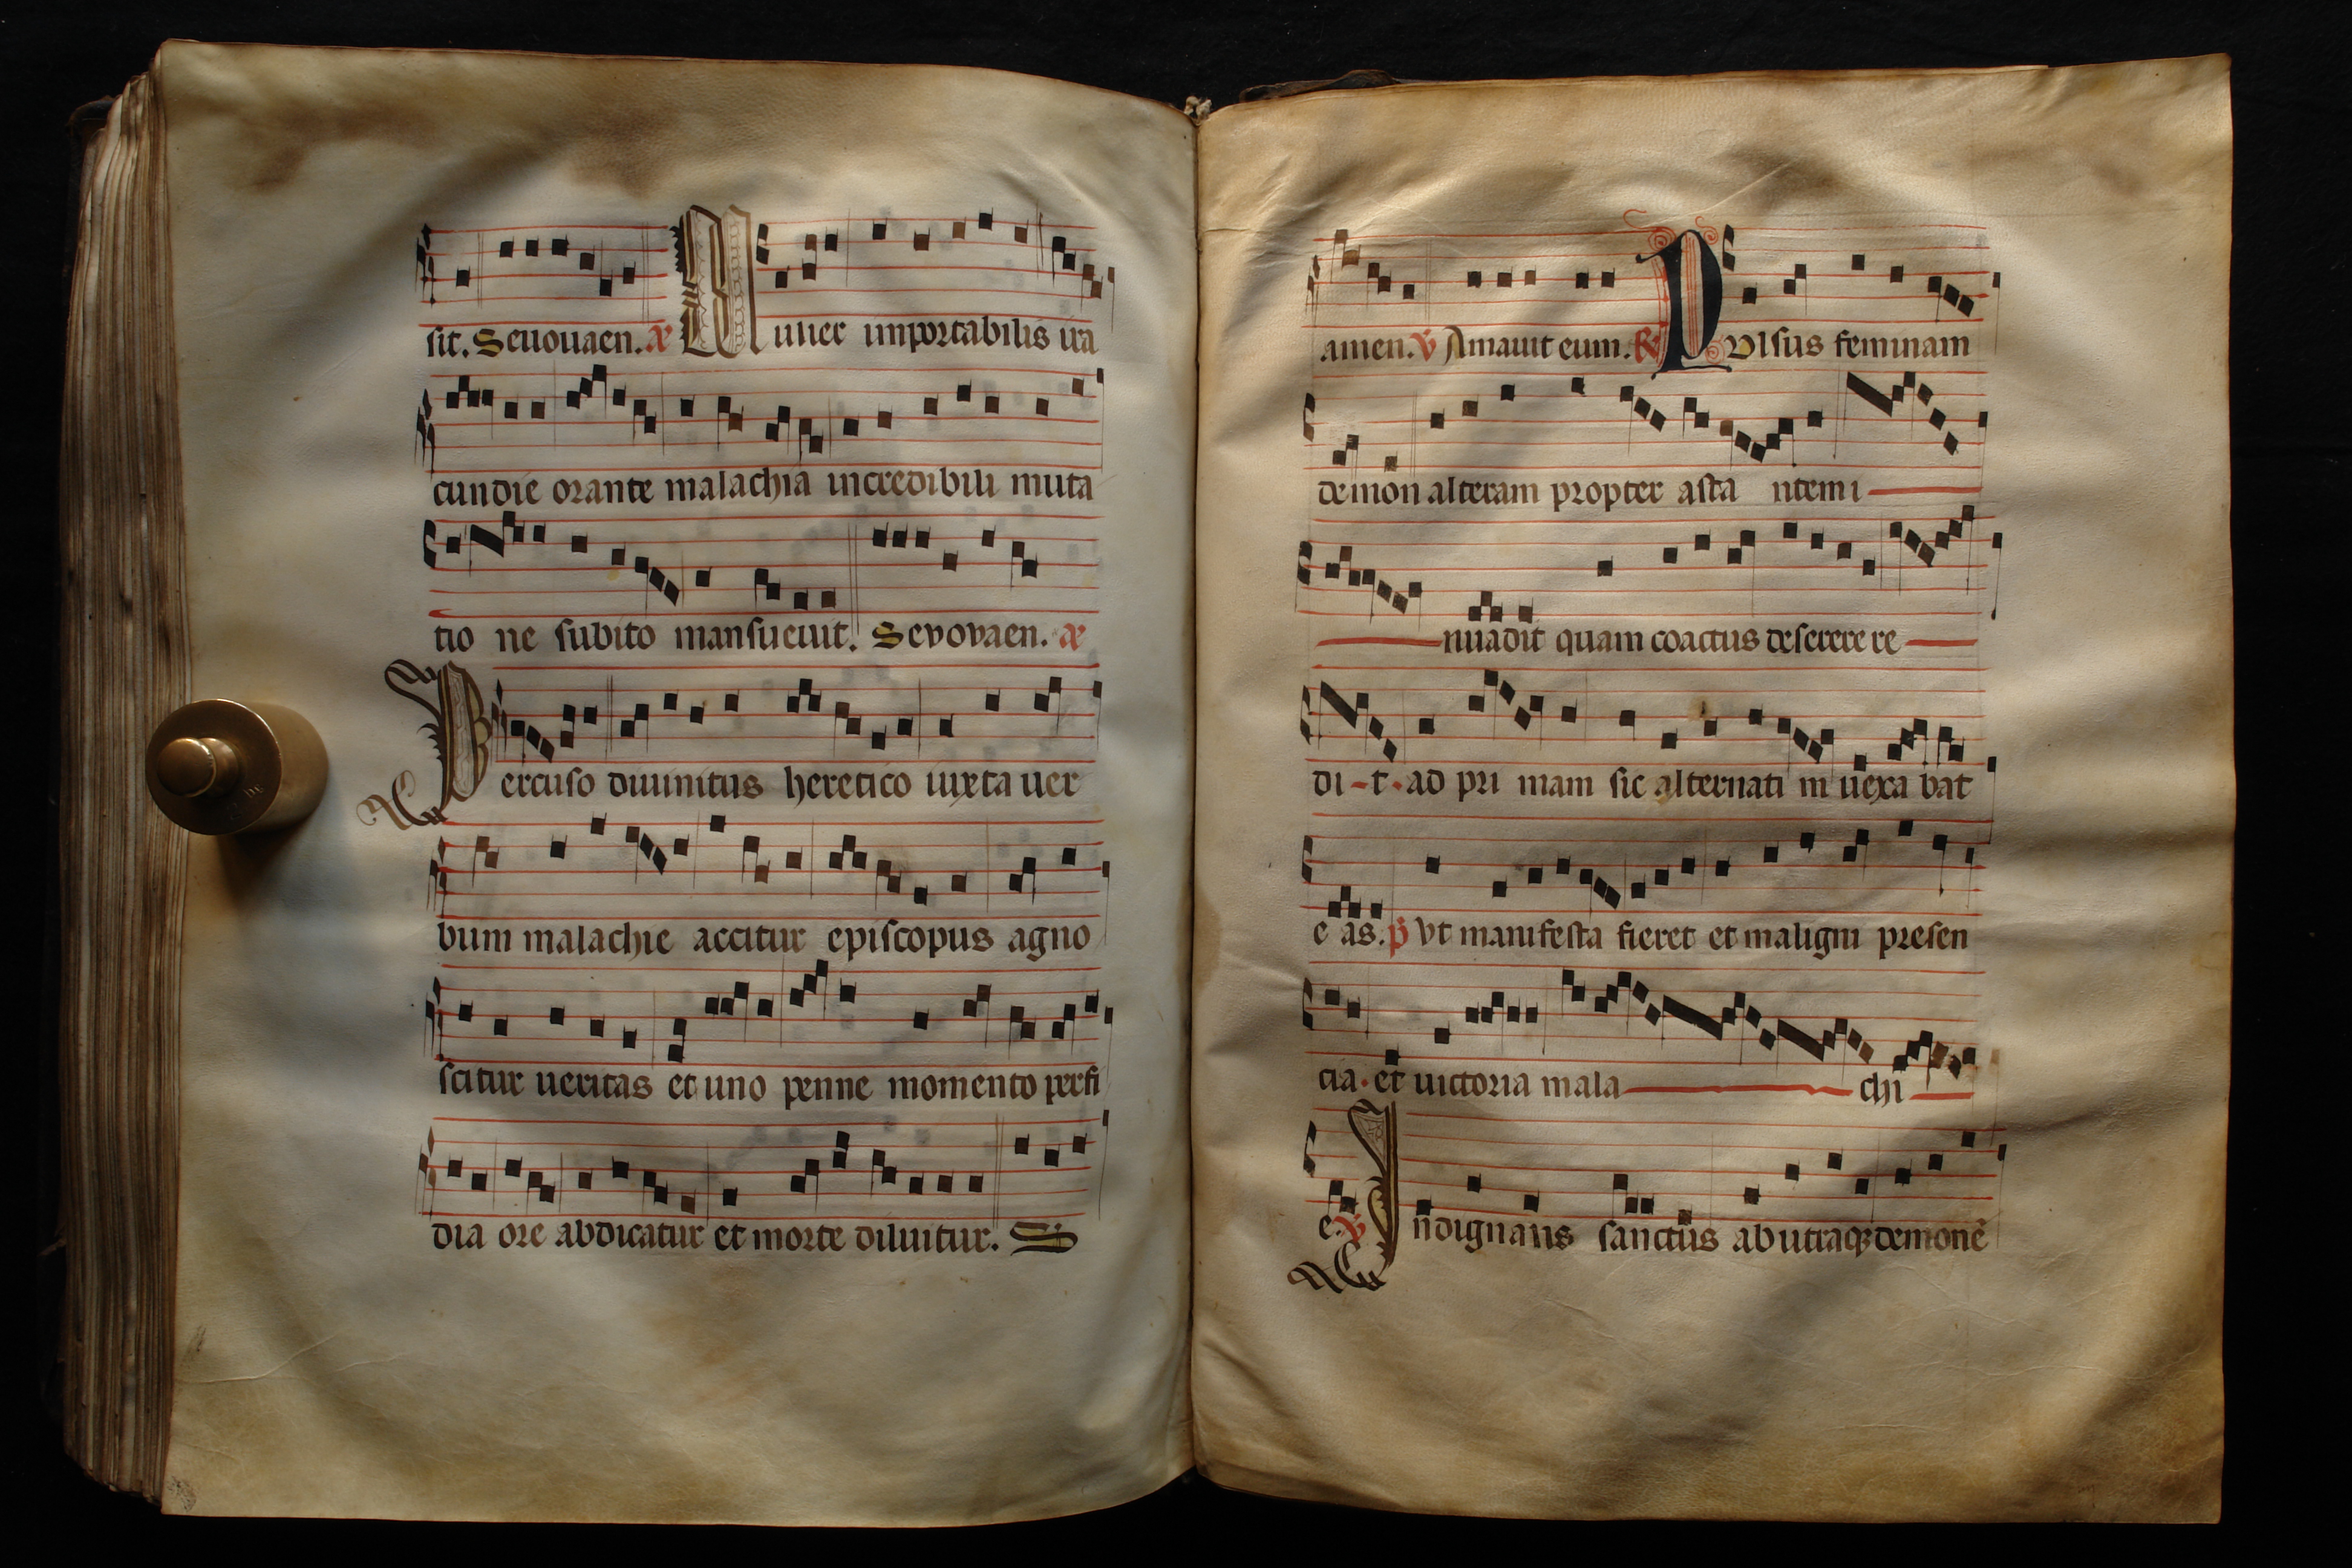 sit. Seuouaen. ae Mulier importabilis ira
cundie orante malachia incredibili muta
tio ne subito mansueuit. Sevovaen. ae
Percuso diuinitus heretico iuxta uer
bum malachie accitur episcopus agno
scitur ueritas et uno penne momento perfi
dia ore abdicatur et morte diluitur. S
amen. v Amauit eum. R Pulsus feminam
demon alteram propter asta ntem i
nuadit quam coactus deserere re
di-t. ad pri mam sic alternati m uexa bat
e as. p vt manifesta fieret et maligni presen
cia. et uictoria mala chi
e. v Indignans sanctus ab utraqꝫ demonē